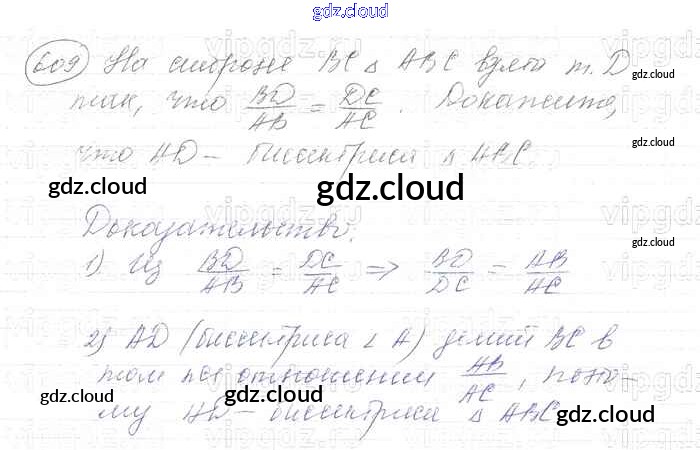 gdz.cloud
609 На стороне BC △ ABC взята т. D
так, что BD/AB = DC/AC. Докажите,
что AD - биссектриса △ ABC
gdz.cloud
gdz.cloud
gdz.cloud
gdz.cloud
Доказательство.
1) Из BD/AB = DC/AC ⇒ BD/DC = AB/AC
gdz.cloud
2) AD (биссектриса ∠ A) делит BC в
том же отношении AB/AC, поэто-
му AD - биссектриса △ ABC
gdz.cloud
gdz.cloud
gdz.cloud
gdz.cloud